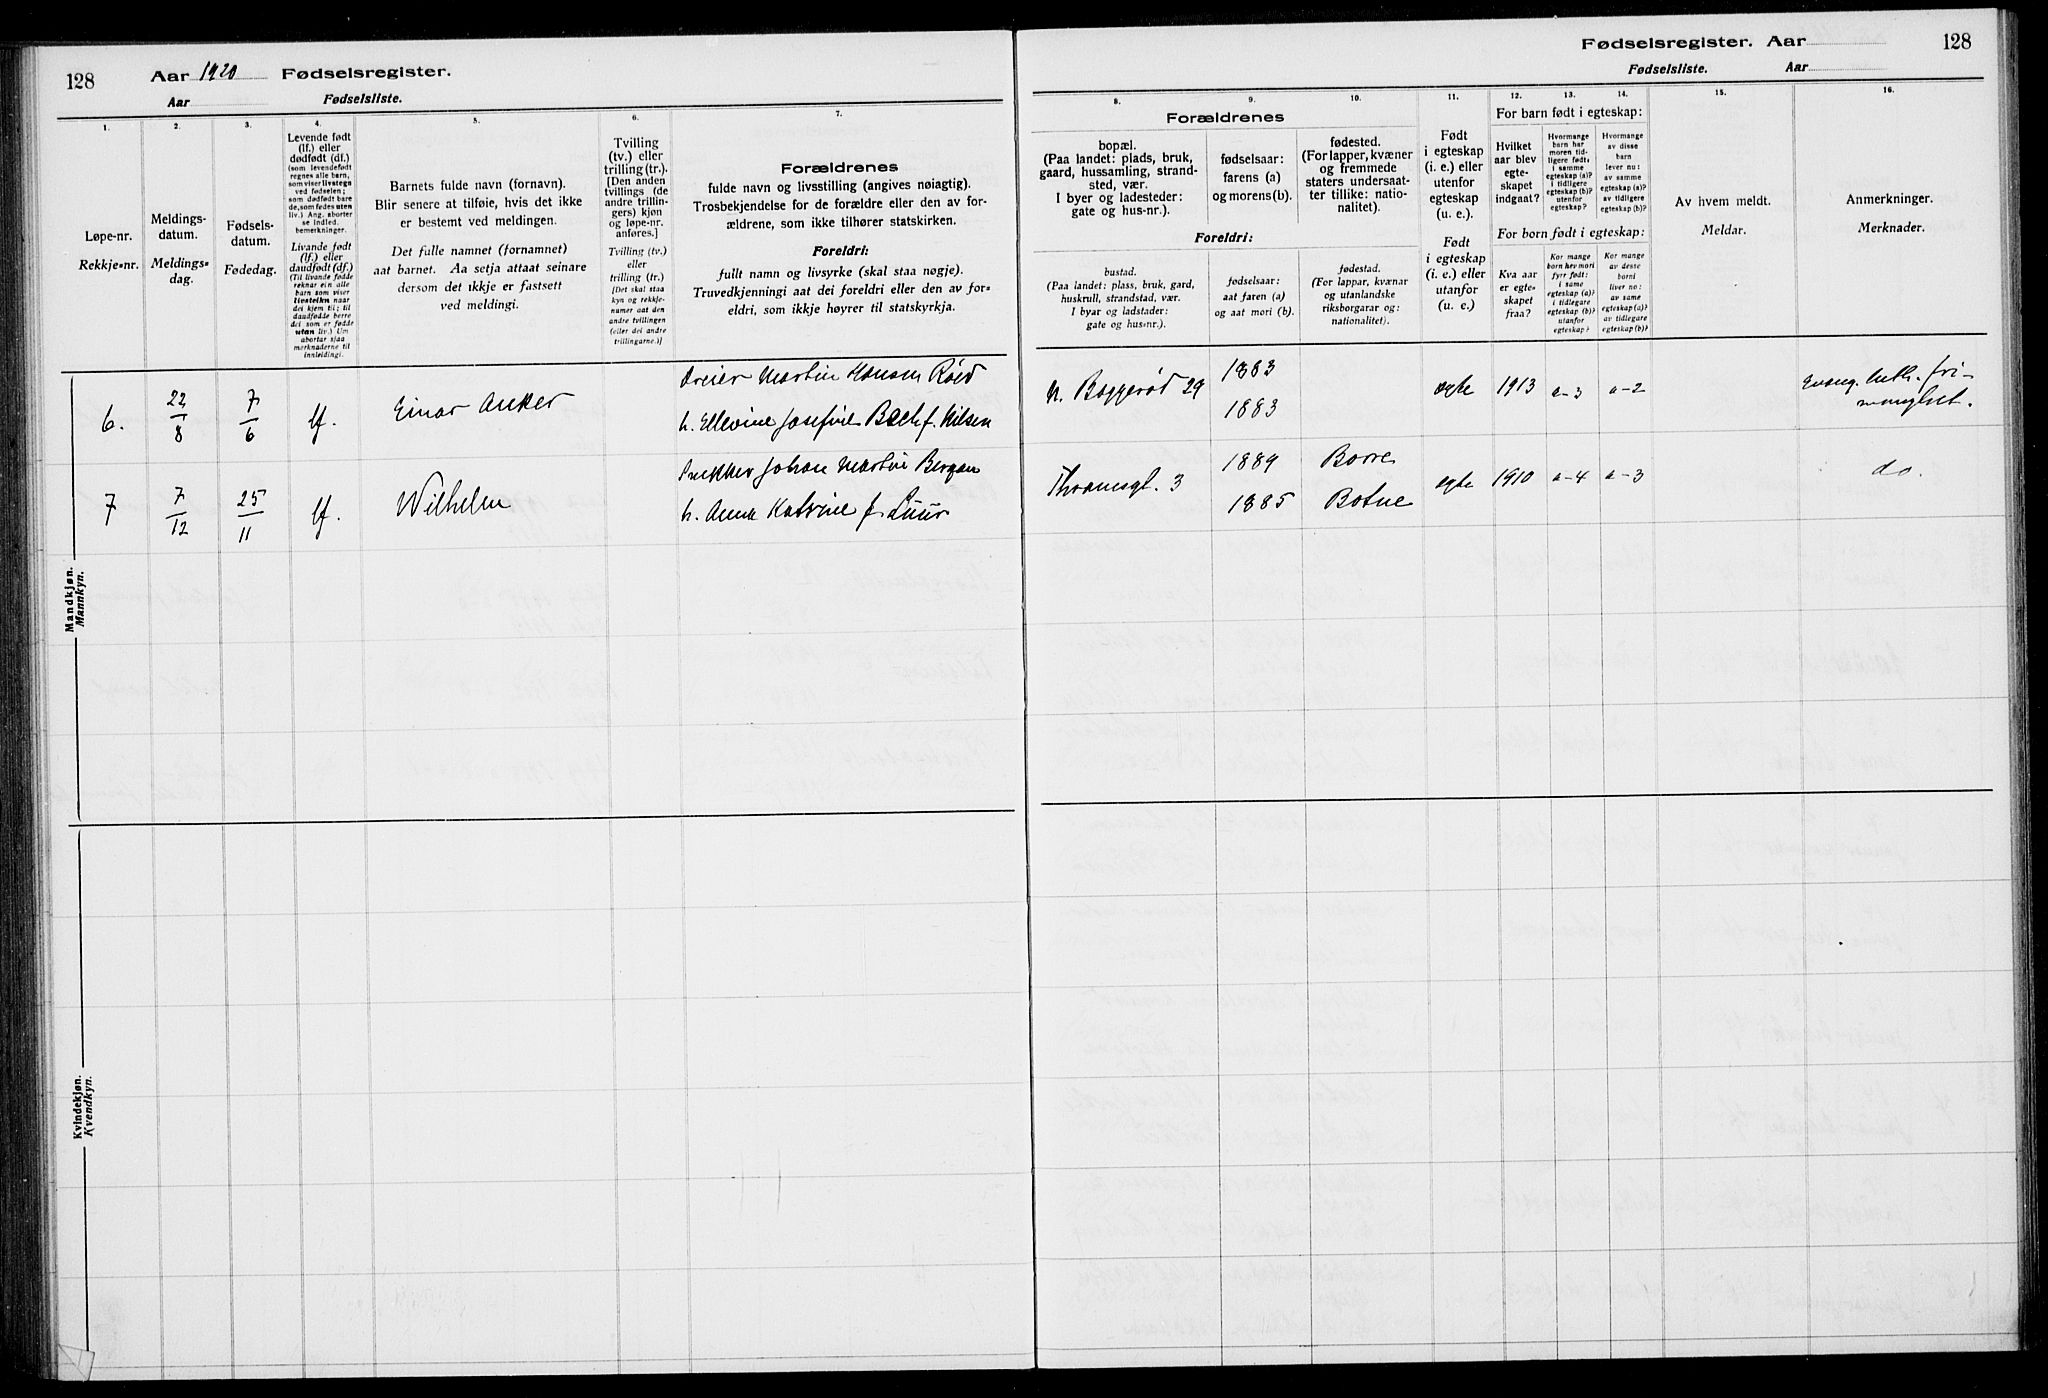 128
Aar 1920 Fødselsregister.
Aar Fødselsliste.
1.
Løpe-nr.
Rekkje=nr.
2.
Meldings-
datum.
Meldings=
dag.
3.
Fødsels-
datum.
Fødedag.
4.
Levende født
(lf.) eller
dødfødt (df.)
(som levendefødt
regnes alle barn,
som viser livstegn
ved fødselen;
som dødfødt bare
de, som fødes uten
liv.) Ang. aborter
se indled.
bemerkninger.
Livande født
(lf.) eller
daudfødt (df.)
(Til livande fødde
reknar ein alle
barn som viser
livsteikn naar
dei kjem til; til
daudfødde berre
dei som er fødde
utan liv.) Um
abortar sjaa
merknaderne til
innleidingi.
5.
Barnets fulde navn (fornavn).
Blir senere at tilføie, hvis det ikke
er bestemt ved meldingen.
Det fulle namnet (fornamnet)
aat barnet. Aa setja attaat seinare
dersom det ikkje er fastsett
ved meldingi.
6.
Tvilling
(tv.) eller
trilling (tr.).
[Den anden
tvillings (de
andre trillin-
gers) kjøn
og løpe-nr.
anføres.]
Tvilling (tv.)
eller
trilling (tr.)
[Det skal staa
kyn og rekkje-
numer aat den
andre tvillingen
(eller dei andre
trillingarne.)]
7.
Forældrenes
fulde navn og livsstilling (angives nøiagtig).
Trosbekjendelse for de forældre eller den av for-
ældrene, som ikke tilhører statskirken.
Foreldri:
fullt namn og livsyrke (skal staa nøgje).
Truvedkjenningi aat dei foreldri eller den av for=
eldri, som ikkje høyrer til statskyrkja.
Mandkjøn.
Mannkyn.
6.
22/8
7/6
lf.
Einar Anker
Dreier Martin Hansen Röed
h. Ellevine Josefine Bach f. Nilsen
7
7/12
25/11
lf.
Wilhelm
Snekker Johan Martin Bergan
h. Anna Katrine f. Luur
Kvindekjøn.
Kvendkyn.
Fødselsregister. Aar
128
Fødselsliste. Aar
8.
Forældrenes
bopæl.
(Paa landet: plads, bruk,
gaard, hussamling, strand-
sted, vær.
I byer og ladesteder:
gate og hus-nr.).
Foreldri:
bustad.
(Paa landet: plass, bruk, gard,
huskrull, strandstad, vær.
I byar og ladstader:
gate og hus=nr.).
9.
fødselsaar:
farens (a)
og morens (b).
fødselsaar:
aat faren (a)
og aat mori (b).
10.
fødested.
(For lapper, kvæner
og fremmede
staters undersaat-
ter tillike: natio-
nalitet).
fødestad.
(For lappar, kvænar
og utanlandske
riksborgarar og:
nationalitet).
11.
Født
i egteskap
(i. e.) eller
utenfor
egteskap
(u. e.).
Født
i egteskap
(i. e.) eller
utanfor
egteskap
(u. e.)
For barn født i egteskap:
12.
Hvilket
aar blev
egte-
skapet
indgaat?
13.
Hvormange
barn har
moren tid-
ligere født:
i samme
egteskap (a)?
i tidligere
egteskap (b)?
utenfor
egteskap?
14.
Hvormange
av disse
barn
lever nu:
av samme
egteskap (a)?
av tidligere
egteskap (b)?
For born født i egteskap:
Kva aar
er egte=
skapet
fraa?
Kor mange
born hev mori
fyrr født:
i same
egteskap (a)?
i tidlegare
egteskap (b)?
utanfor
egteskap?
Kor mange
av desse
borni
liver no:
av same
egteskap (a)?
av tidlegare
egteskap (b)?
15.
Av hvem meldt.
Meldar.
16.
Anmerkninger.
Merknader.
N. Baggerød 29
1883
1883
egte
1913
a-3
a-2
Evang. luth. fri-
menighet.
Thranesgt. 3
1889 Borre
1885 Botne
egte
1910
a-4
a-3
do.